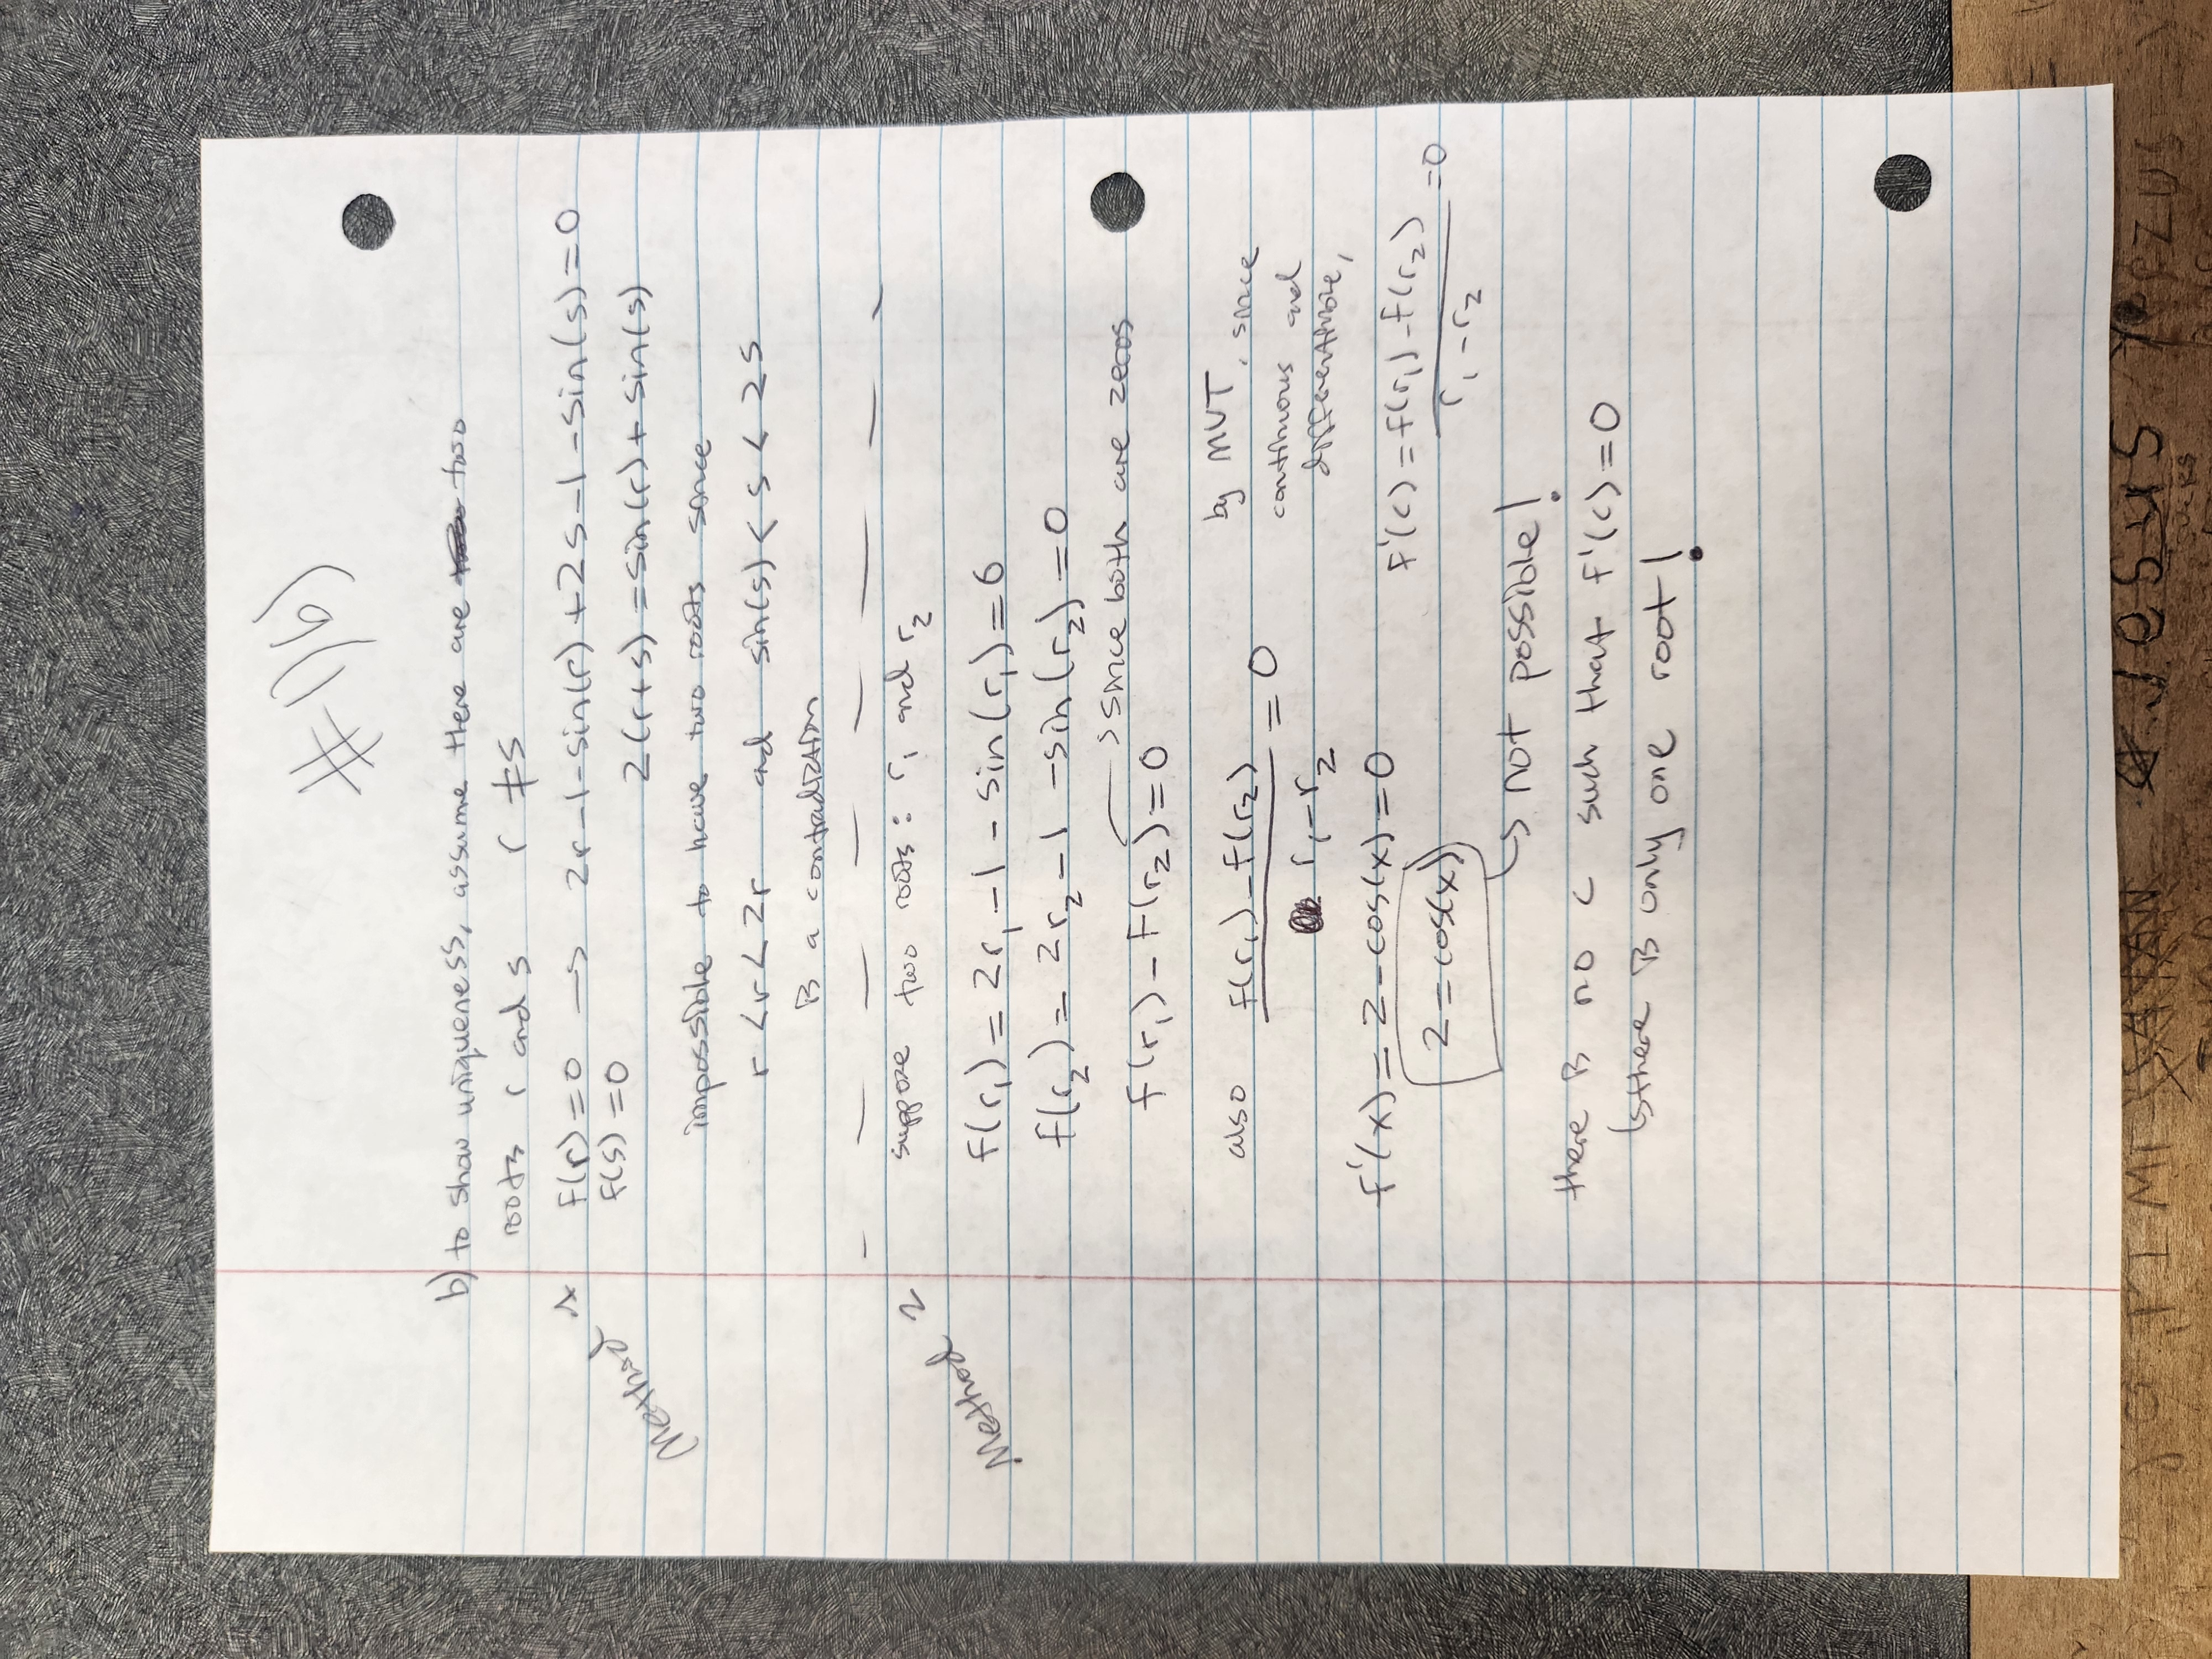 #1)b)
b) to show uniqueness, assume there are two
roots r and s r ≠ s
Method 1
f(r)=0 → 2r-1-sin(r)+2s-1-sin(s)=0
f(s)=0
2(r+s)=sin(r)+sin(s)
impossible to have two roots since
r<r<2r and sin(s)<s<2s
is a contradiction
Method 2
suppose two roots: r₁ and r₂
f(r₁)=2r₁-1-sin(r₁)=0
f(r₂)=2r₂-1-sin(r₂)=0
→ since both are zeros
f(r₁)-f(r₂)=0
also f(r₁)-f(r₂)
=0
r₁-r₂
by MVT, since
continuous and
differentiable,
f'(c)=f(r₁)-f(r₂)
=0
r₁-r₂
f'(x)=2-cos(x)=0
2=cos(x)
↳ not possible!
there is no c such that f'(c)=0
↳ there is only one root!
Jesus